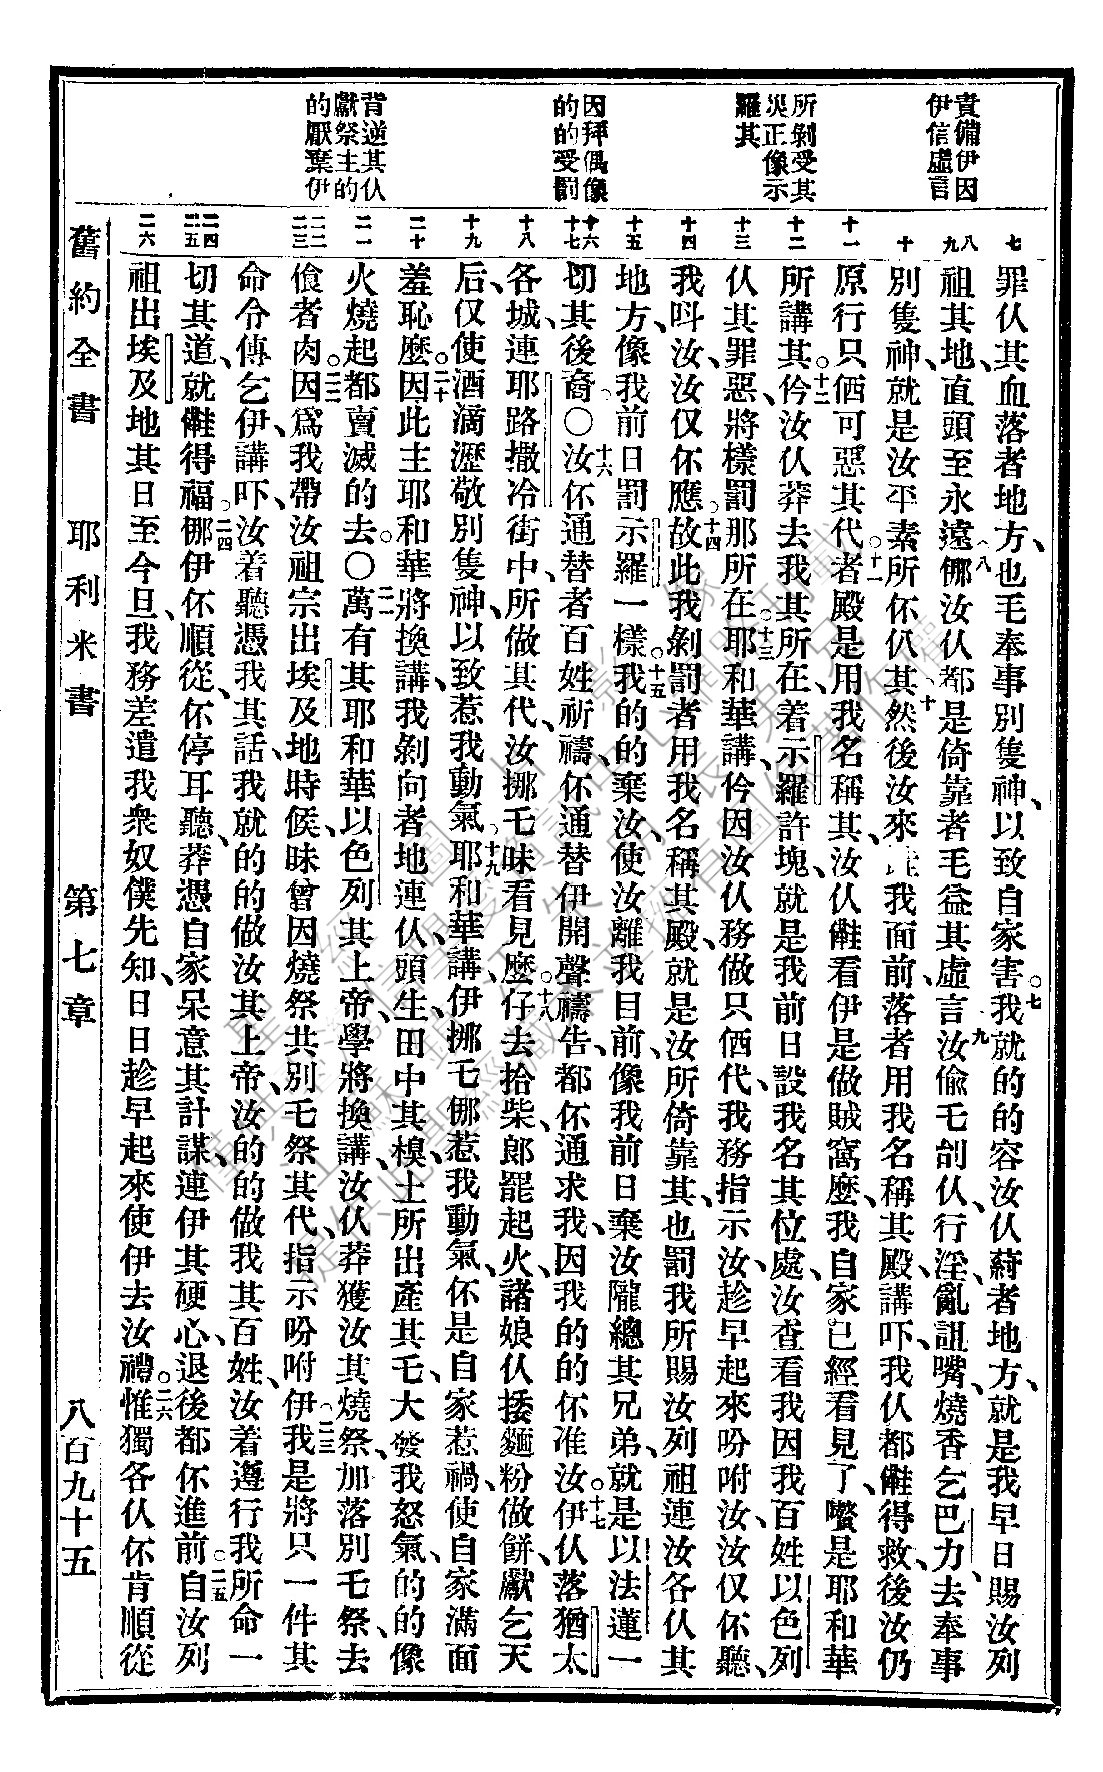 責備伊因
伊信虛言
所剝受其
災正像示
羅其
因拜偶像
的的受罰
背逆其仈
獻祭主的
的厭棄伊
七
八
九
十
十一
十二
十三
十四
十五
十六
十七
十八
十九
二十
二一
二二
二三
二四
二五
二六
罪仈其血落者地方、也毛奉事別隻神、以致自家害。七我就的的容汝仈蒔者地方、就是我早日賜汝列
祖其地、直頭至永遠。八㑚汝仈都是倚靠者毛益其虛言。九汝偷乇刣仈、行淫、亂詛嘴、燒香乞巴力、去奉事
別隻神、就是汝平素所伓仈其、十然後汝來我面前、落者用我名稱其殿、講吓、我仈都得救、後汝仍
原行只仾可惡其代。十一者殿是用我名稱其、汝仈看伊是做賊窩麽、我自家已經看見了、嚽是耶和華
所講其。十二伱汝仈莽去我其所在、着示羅許塊、就是我前日設我名其位處、汝查看我因我百姓以色列
仈其罪惡、將樣罰那所在。十三耶和華講、伱因汝仈務做只仾代、我務指示汝、趁早起來吩咐汝、汝仅伓聽、
我呌汝、汝仅伓應。十四故此我剝罰者用我名稱其殿、就是汝所倚靠其、也罰我所賜汝列祖連汝各仈其
地方、像我前日罰示羅一樣。十五我的的棄汝、使汝離我目前、像我前日棄汝隴總其兄弟、就是以法蓮一
切其後裔。〇十六汝伓通替者百姓祈禱、伓通替伊開聲禱告、都伓通求我、因我的的伓准汝。十七伊仈落猶太
各城、連耶路撒冷街中、所做其代、汝挪乇昧看見麽。十八仔去拾柴、郎罷起火、諸娘仈捼麵粉做餅、獻乞天
后、仅使酒滴瀝敬別隻神、以致惹我動氣。十九耶和華講、伊挪乇㑚惹我動氣、伓是自家惹禍、使自家滿面
羞恥麽。二十因此主耶和華將換講、我剝向者地連仈頭生、田中其模、土所出產其乇、大發我怒氣、的的像
火燒起、都賣滅的去。〇二一萬有其耶和華以色列其上帝、學將換講、汝仈莽獲汝其燒祭、加落別乇祭去
偹者肉。二二因爲我帶汝祖宗出埃及地時候、昧曾因燒祭共別乇祭其代、指示吩咐伊。二三我是將只一件其
命令傳乞伊、講吓、汝着聽憑我其話、我就的的做汝其上帝、汝的的做我其百姓、汝着遵行我所命一
切其道、就得福。二四㑚伊伓順從、伓停耳聽、莽憑自家呆意其計謀、連伊其硬心、退後都伓進前。二五自汝列
祖出埃及地其日至今旦、我務差遣我衆奴僕先知、日日趁早起來、使伊去汝禮。二六惟獨各仈伓肯順從
舊約全書 耶利米書 第七章 八百九十五